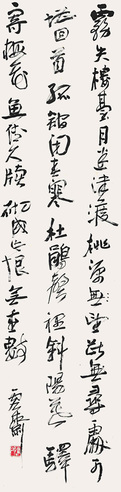 霧失樓臺月迷津渡桃源望斷無尋處可
堪回首孤館閉春寒杜鵑聲裡斜陽暮驛
寄梅花魚傳尺砌成此恨無重數